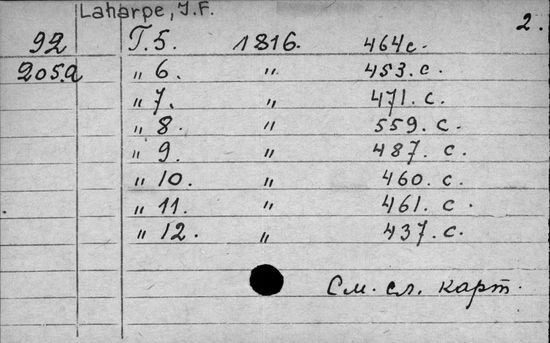 Laharpe, J.F.
2.
92 T.5. 1816. 464 с.
205a " 6. " 453. с.
" 7. " 471. с.
" 8. " 559. с.
" 9. " 487. с.
" 10. " 460. с.
" 11. " 461. с.
" 12. " 437. с.
См. сл. карт.